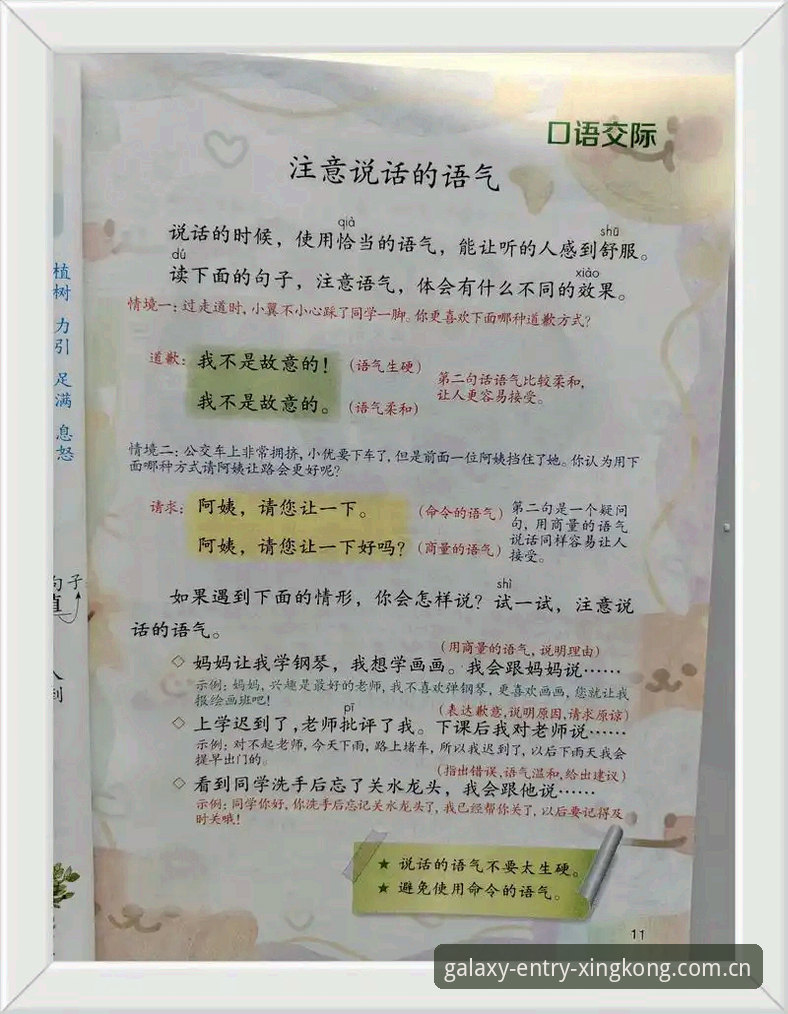 口语交际
注意说话的语气
qià
shū
说话的时候，使用恰当的语气，能让听的人感到舒服。
dú
xiào
读下面的句子，注意语气，体会有什么不同的效果。
情境一：过走道时，小翼不小心踩了同学一脚。你更喜欢下面哪种道歉方式？
道歉：我不是故意的！（语气生硬）
我不是故意的。（语气柔和）
第二句话语气比较柔和，
让人更容易接受。
情境二：公交车上非常拥挤，小优要下车了，但是前面一位阿姨挡住了她。你认为用下
面哪种方式请阿姨让路会更好呢？
请求：阿姨，请您让一下。（命令的语气）
阿姨，请您让一下好吗？（商量的语气）
第二句是一个疑问
句，用商量的语气
说话同样容易让人
接受。
shì
如果遇到下面的情形，你会怎样说？试一试，注意说
话的语气。
（用商量的语气，说明理由）
◇ 妈妈让我学钢琴，我想学画画。我会跟妈妈说……
示例：妈妈，兴趣是最好的老师，我不喜欢弹钢琴，更喜欢画画，您就让我
报绘画班吧！
（表达歉意，说明原因，请求原谅）
pī
◇ 上学迟到了，老师批评了我。下课后我对老师说……
示例：对不起老师，今天下雨，路上堵车，所以我迟到了，以后下雨天我会
提早出门的。
（指出错误，语气温和，给出建议）
◇ 看到同学洗手后忘了关水龙头，我会跟他说……
示例：同学你好，你洗手后忘记关水龙头了，我已经帮你关了，以后要记得及
时关哦！
★ 说话的语气不要太生硬。
★ 避免使用命令的语气。
11
植
树
力
引
足
满
息
怒
句子
直
到
galaxy-entry-xingkong.com.cn